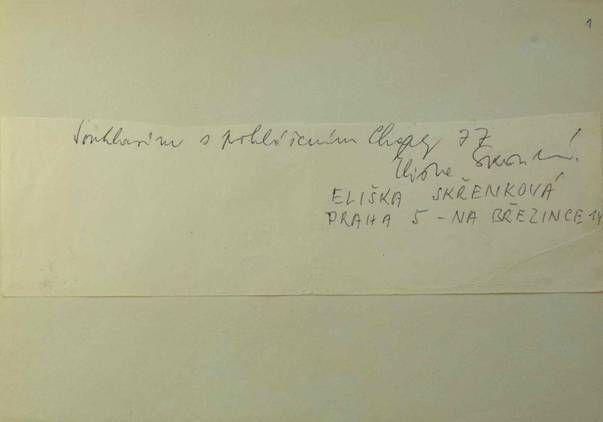 1
Souhlasím s prohlášením Charty 77
Eliška Skřenková
ELIŠKA SKŘENKOVÁ
PRAHA 5 - NA BŘEZINCE 14